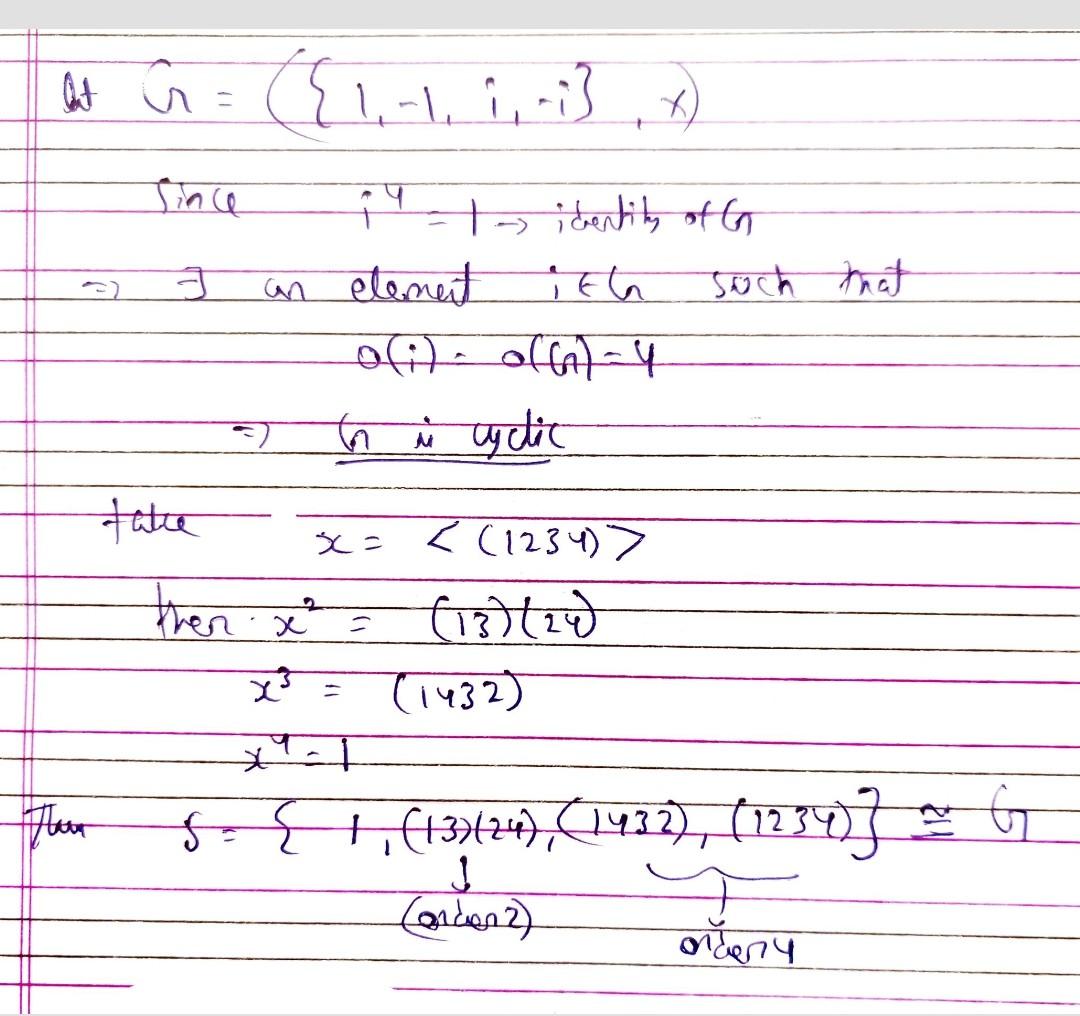 let G = ({1, -1, i, -i}, ×)
Since i⁴ = 1 → identity of G
=> ∃ an element i ∈ G such that
o(i) = o(G) = 4
=> G is cyclic
take x = < (1234) >
then x² = (13)(24)
x³ = (1432)
x⁴ = 1
Then S = { 1, (13)(24), (1432), (1234) } ≅ G
↓
(order 2) order 4